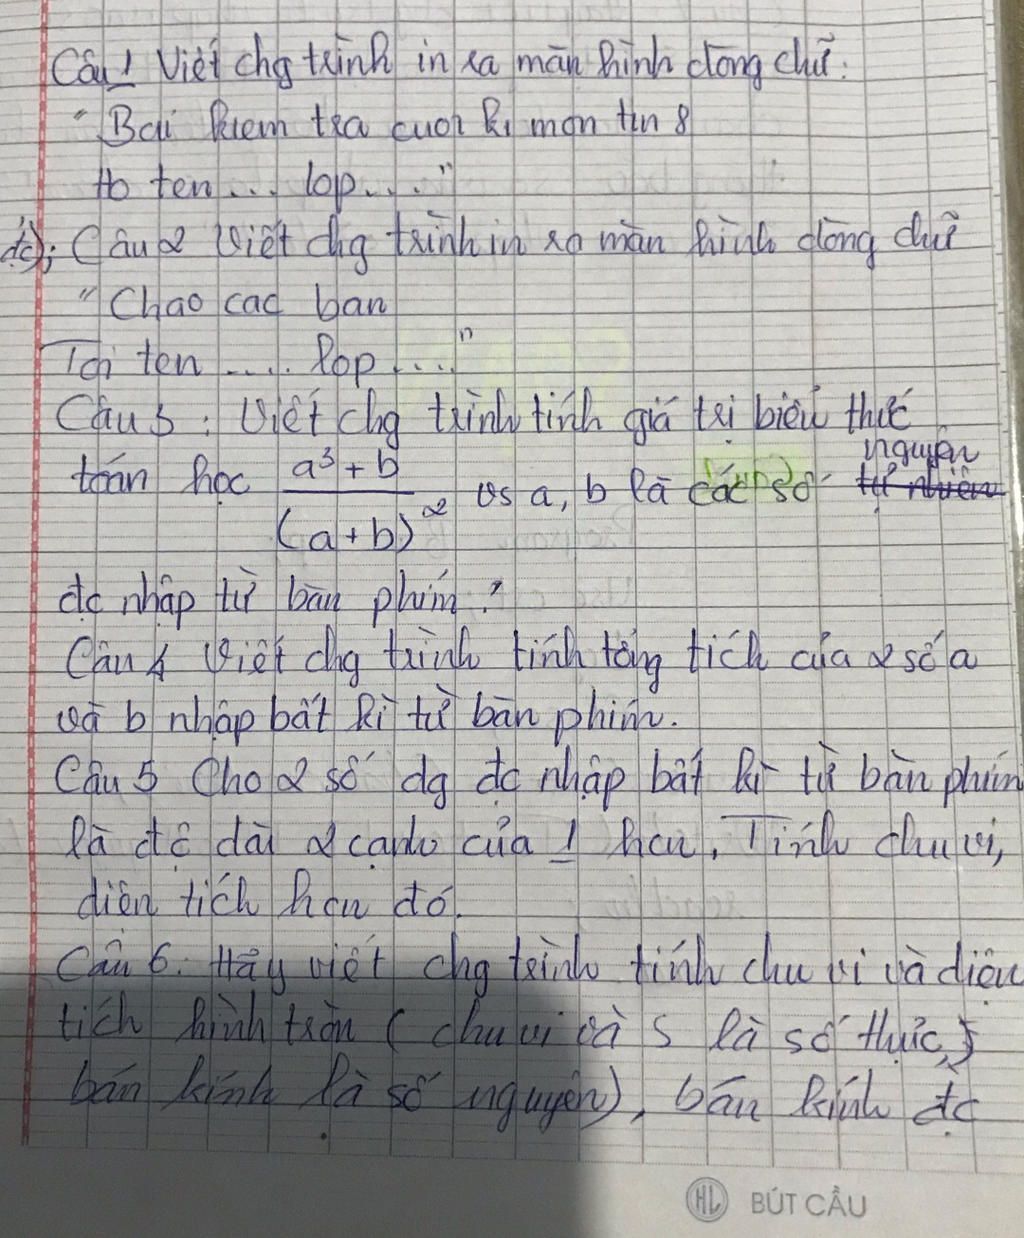 Câu 1 Viết chg trình in ra màn hình dòng chữ:
"Bai kiem tra cuoi ki mon tin 8
Ho ten... lop...."
Câu 2 Viết chg trình in ra màn hình dòng chữ
"Chao cac ban
Toi ten ..... lop ...."
Câu 3: Viết chg trình tính giá trị biểu thức
toán học (a³ + b)/(a + b)² vs a, b là các số tự nhiên nguyên
đc nhập từ bàn phím?
Câu 4 Viết chg trình tính tổng tích của 2 số a
và b nhập bất kì từ bàn phím.
Câu 5 Cho 2 số dg đc nhập bất kì từ bàn phím
là độ dài 2 cạnh của 1 hcn. Tính chu vi,
diện tích hcn đó.
Câu 6. Hãy viết chg trình tính chu vi và diện
tích hình tròn (chu vi và S là số thực,
bán kính là số nguyên), bán kính đc
HL BÚT CẦU